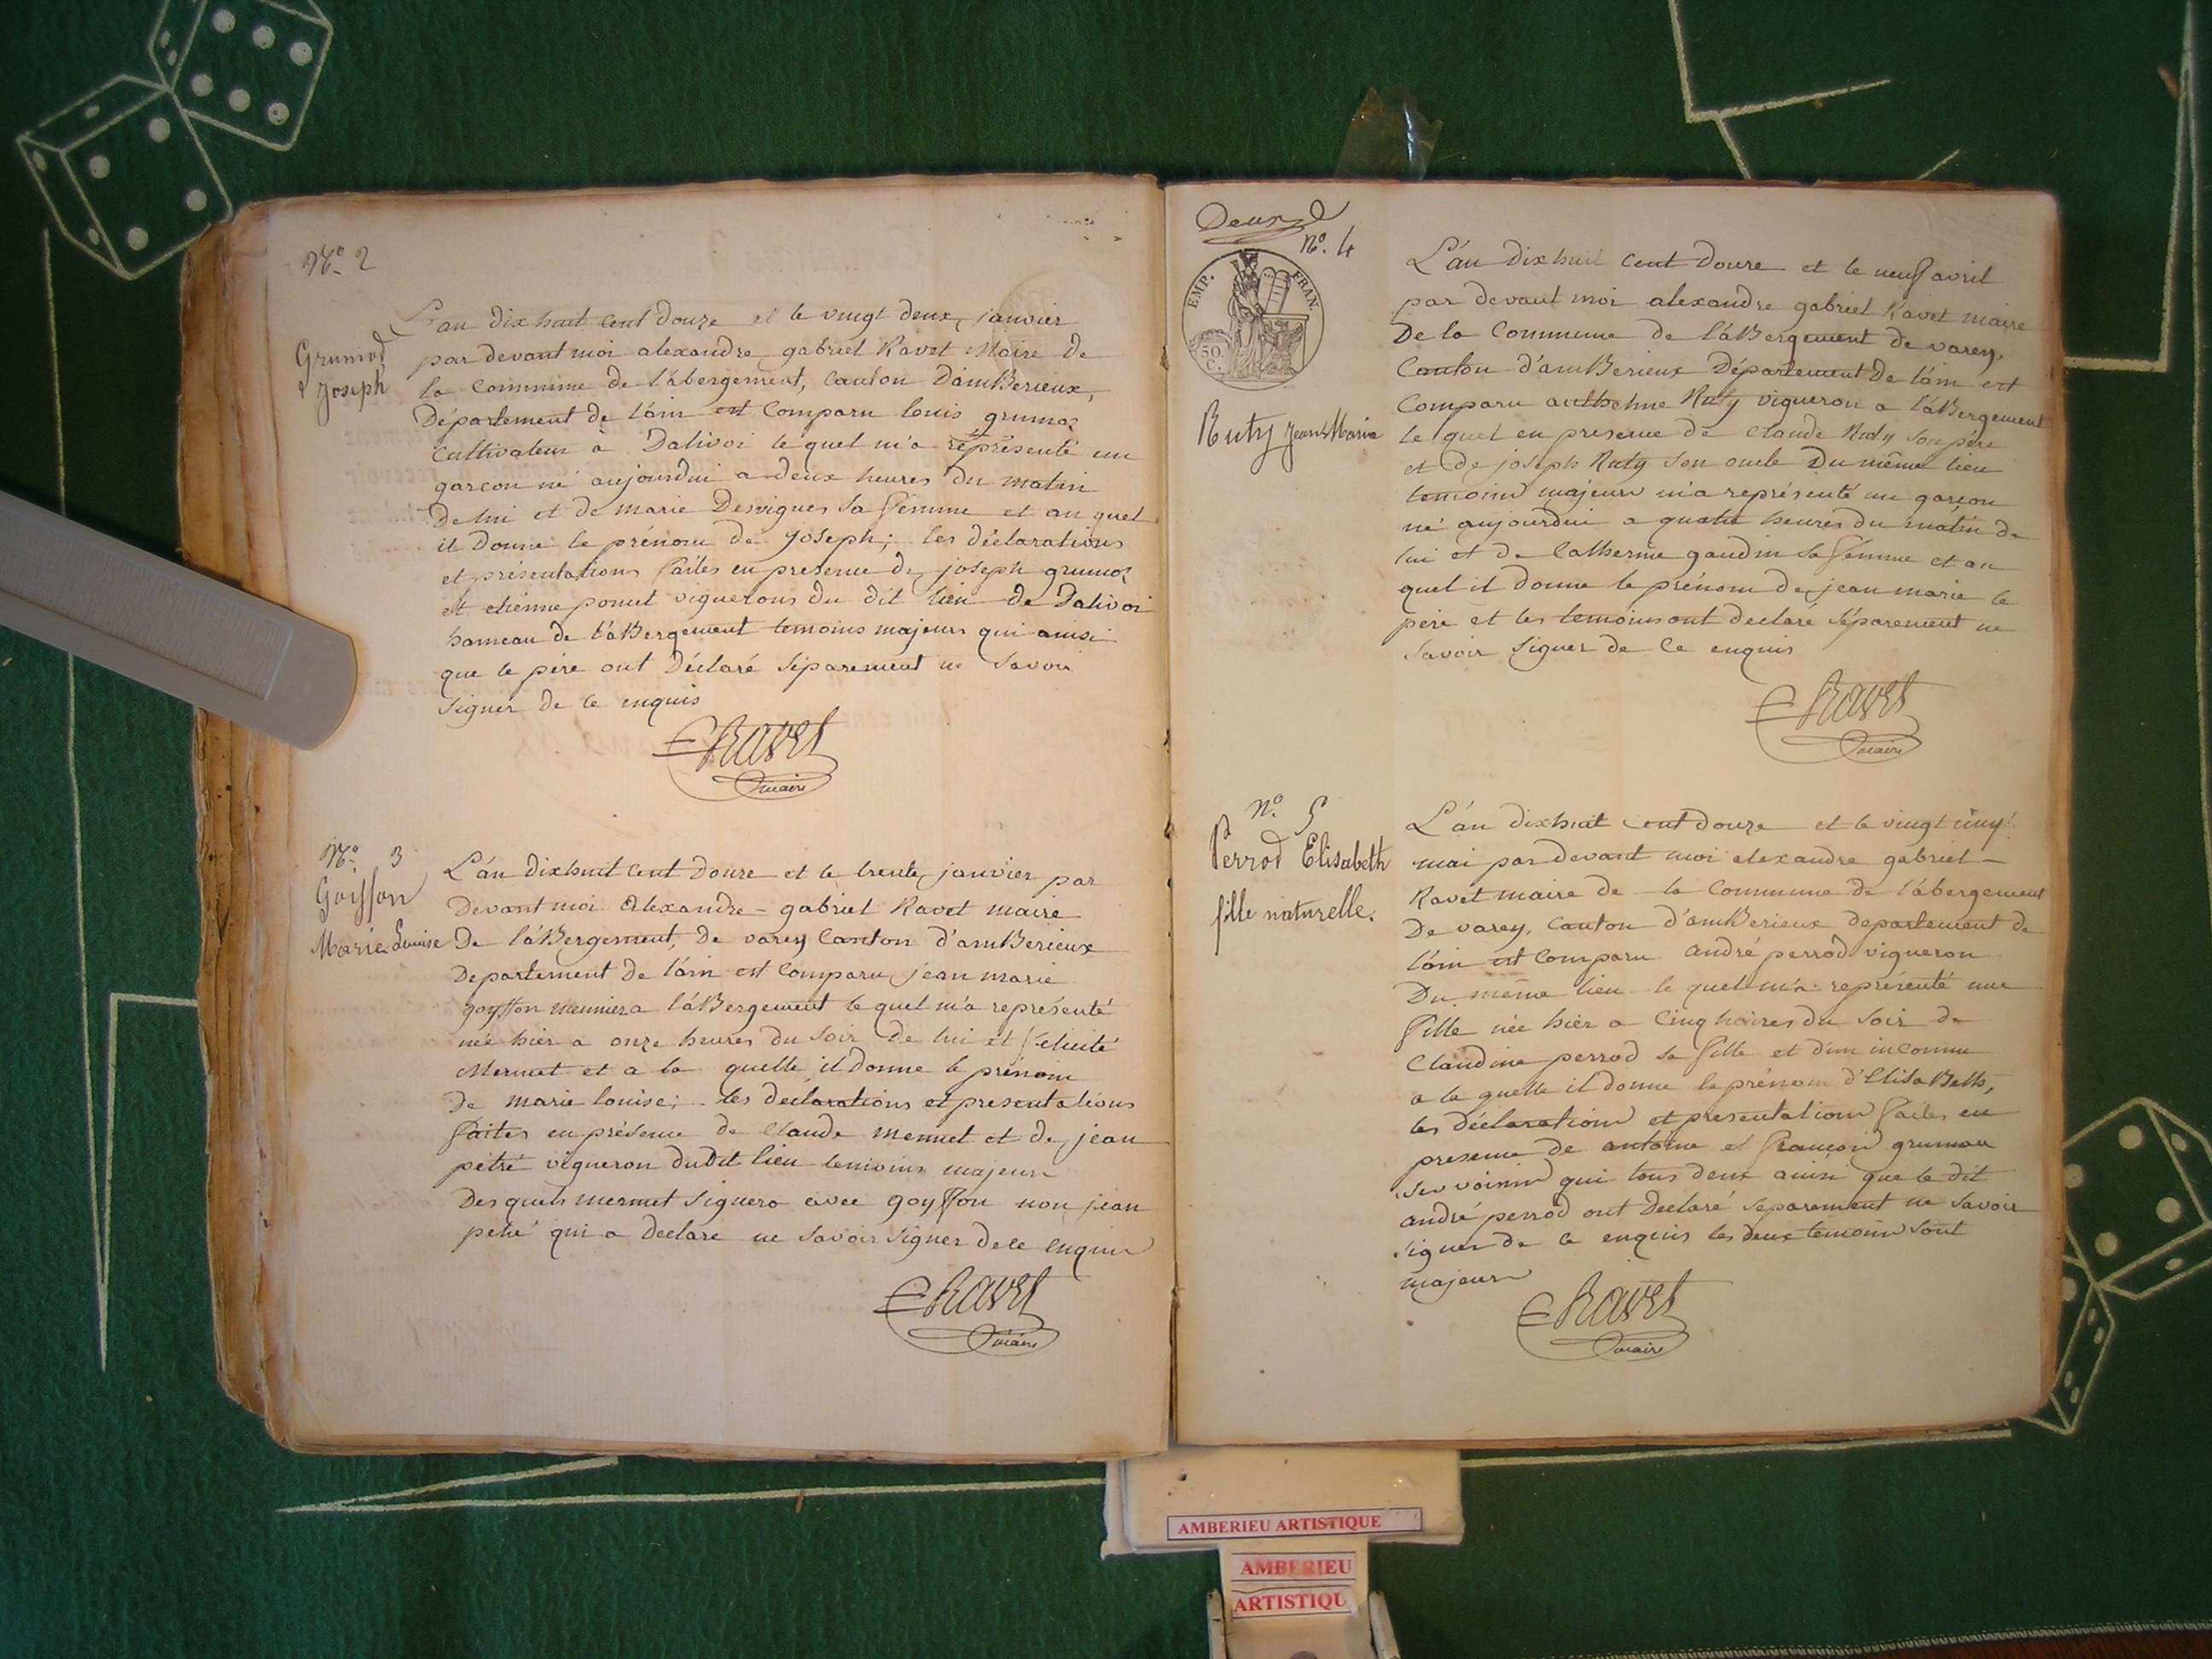 N.º 2
Grumod
Joseph
L'an dix huit cent douze et le vingt deux, janvier
par devant moi alexandre gabriel Ravet Maire de
la Commune de l'abergement, Canton D'amBerieux,
Département de l'ain est Comparu louis grumoz
Cultivateur à Dalivoi le quel m'a représenté un
garcon né aujourdui a deux heures du matin
De lui et de marie Desvignes sa femme et au quel
il Donne le prénom de Joseph; les déclarations
et présentations faites en presence de joseph grumoz
et etienne ponut viguerons du dit lieu de Dalivoi
hameau de l'aBergement temoins majeurs qui ainsi
que le père ont Déclaré séparement ne savoir
signer de ce enquis
Ravet
maire
N.º 3
Goiffon
Marie Louise
L'an dixhuit Cent Douze et le trente, janvier par
Devant moi Alexandre - gabriel Ravet maire
De l'aBergement, De varey Canton d'amBerieux
Departement De l'ain est Comparu, jean marie
goyffon meunier a l'aBergement le quel m'a représenté
née hier a onze heures du soir De lui et felicité
Mermet et a la quelle il Donne le prénom
De marie louise; les declarations et presentations
faites en présence de Claude mermet et de jean
petré vigneron du Dit lieu temoins majeurs
Des quels mermet signera avec goyffon non jean
petré qui a declare ne savoir signer de ce enquis
Ravet
maire
Deux
N.º 4
EMP. FRAN.
50 C.
Ruty Jean Marie
L'an dix huit Cent Douze et le neuf avril
par devant moi alexandre gabriel Ravet maire
De la Commune de l'aBergement de varey,
Canton d'amBerieux Département De l'ain est
Comparu anthelme Ruty vigneron a l'aBergement
le quel en presence de Claude Ruty son père
et de joseph Ruty son oncle Du même lieu
temoins majeurs m'a représenté un garçon
né aujourdui a quatre heures du matin de
lui et de Catherine gaudin sa femme et au
quel il donne le prénom de jean marie le
père et les temoins ont declaré séparement ne
savoir signer de Ce enquis
Ravet
maire
n.º 5
Perrod Elisabeth
fille naturelle.
L'an dixhuit cent douze et le vingt cinq
mai par devant moi alexandre gabriel -
Ravet maire de la Commune de l'abergement
De varey, Canton d'amBerieux departement de
l'ain est Comparu andré perrod vigneron
Du même lieu le quel m'a représenté une
fille née hier a Cinq heures du soir de
Claudine perrod sa fille et d'un inconnu
a la quelle il donne le prénom d'ElisaBeth,
les déclarations et presentations faites en
presence de antoine et françois grumau
ses voisins qui tous deux ainsi que le dit
andré perrod ont Declaré separement ne savoir
signer de ce enquis les deux temoins sont
majeurs
Ravet
maire
AMBERIEU ARTISTIQUE
AMBERIEU
ARTISTIQU